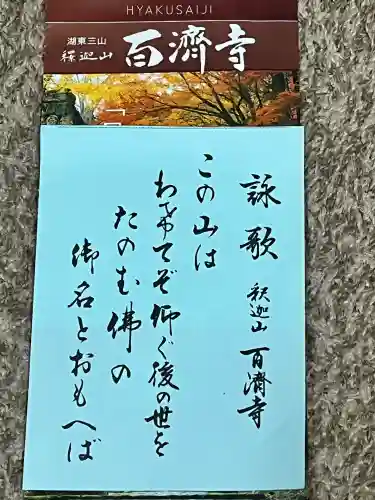 HYAKUSAIJI
湖東三山
釈迦山 百濟寺
詠歌 釈迦山 百濟寺
この山は
わきてぞ仰ぐ後の世を
たのむ佛の
御名とおもへば